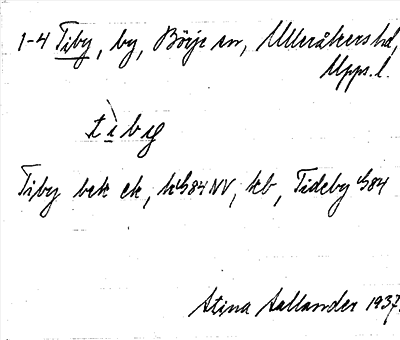 1-4 Tiby, by, Börje sn, Ulleråkers hd,
Upps. l.
tìby
Tiby bek ek, hS84NV, kb, Tideby S84
Stina Aallander 1937.